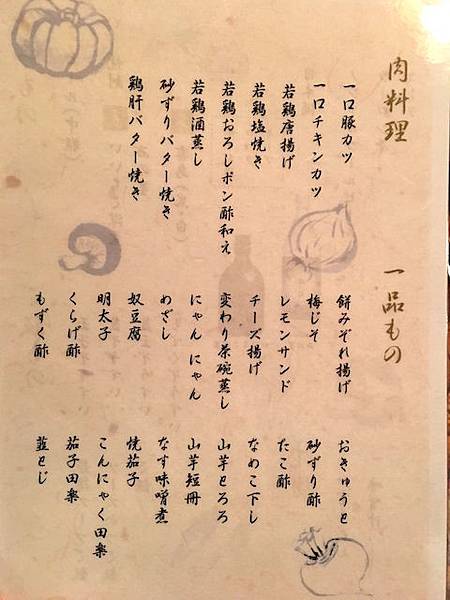 肉料理
一口豚カツ
一口チキンカツ
若鶏唐揚げ
若鶏塩焼き
若鶏おろしポン酢和え
若鶏酒蒸し
砂ずりバター焼き
鶏肝バター焼き
一品もの
餅みぞれ揚げ
梅じそ
レモンサンド
チーズ揚げ
変わり茶碗蒸し
にゃん にゃん
めざし
奴豆腐
明太子
くらげ酢
もずく酢
おきゅうと
砂ずり酢
たこ酢
なめこ下し
山芋とろろ
山芋短冊
なす味噌煮
焼茄子
こんにゃく田楽
茄子田楽
韮とじ